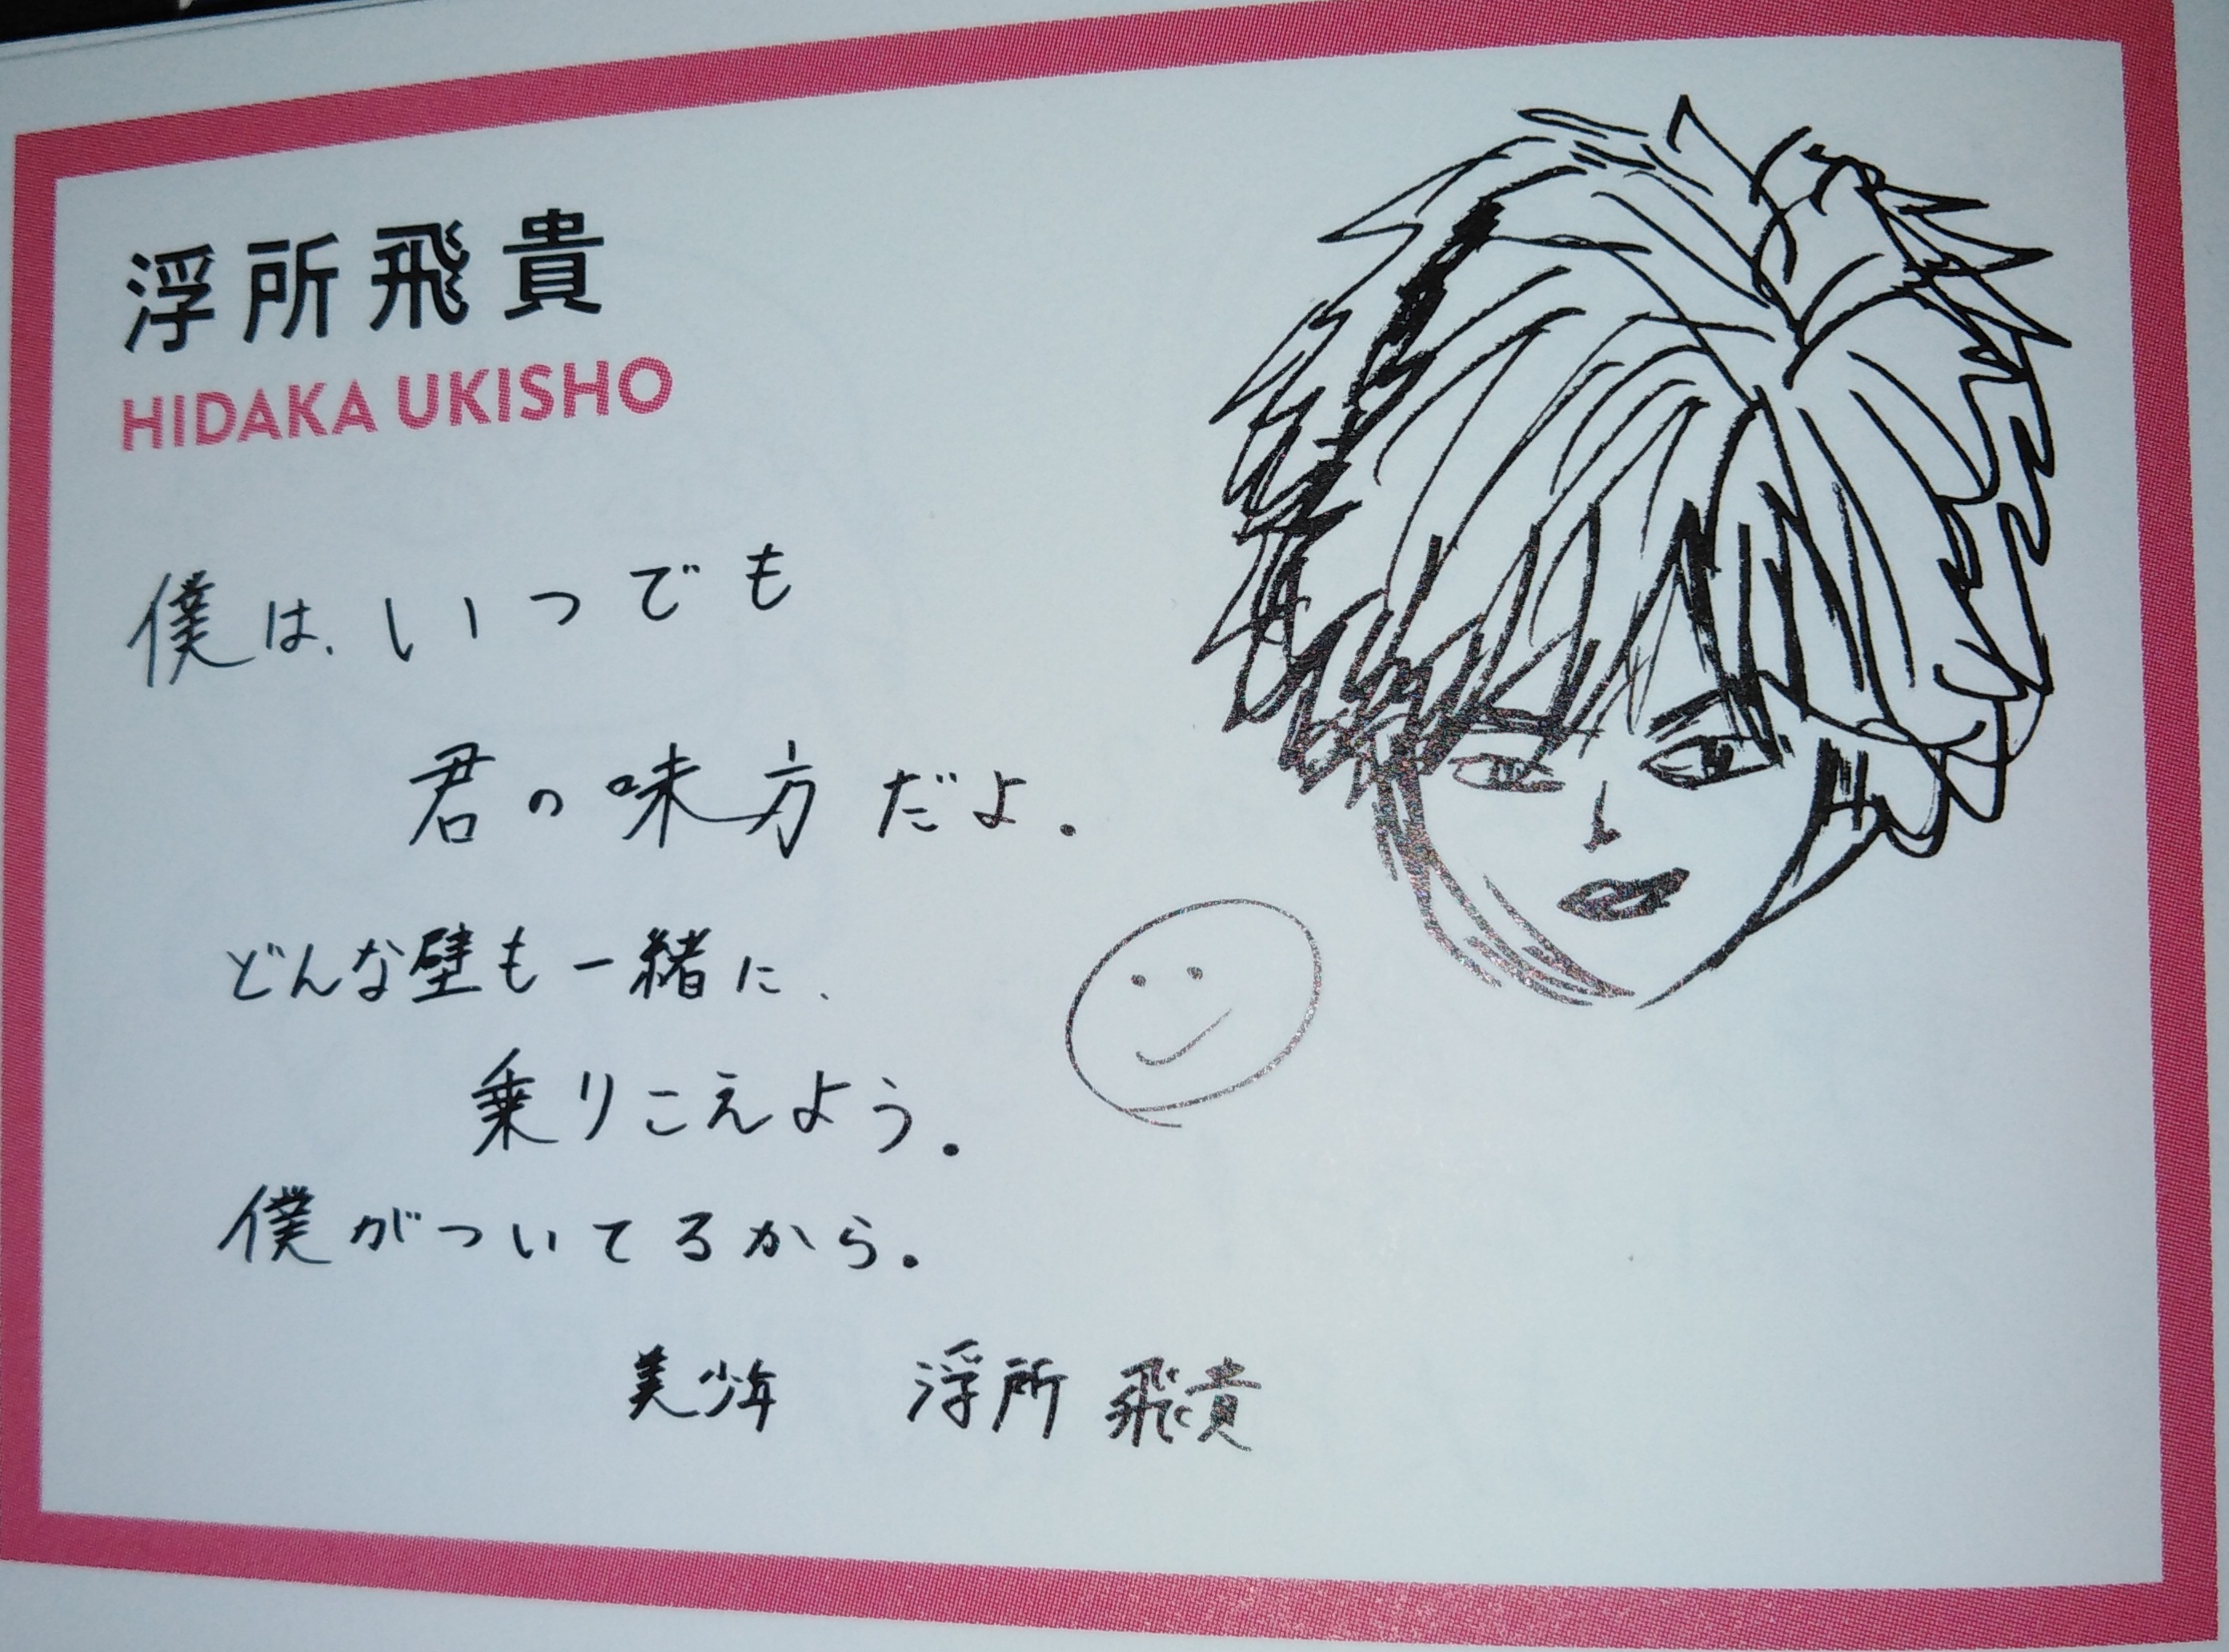 浮所飛貴
HIDAKA UKISHO
僕は、いつでも
君の味方だよ.
どんな壁も一緒に、
乗りこえよう.
僕がついてるから.
美少年 浮所 飛貴